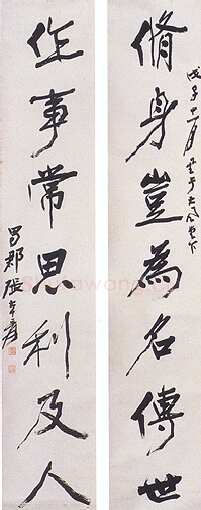 戊子
脩身豈為名傳世
作事常思利及人
蜀郡張大千爰